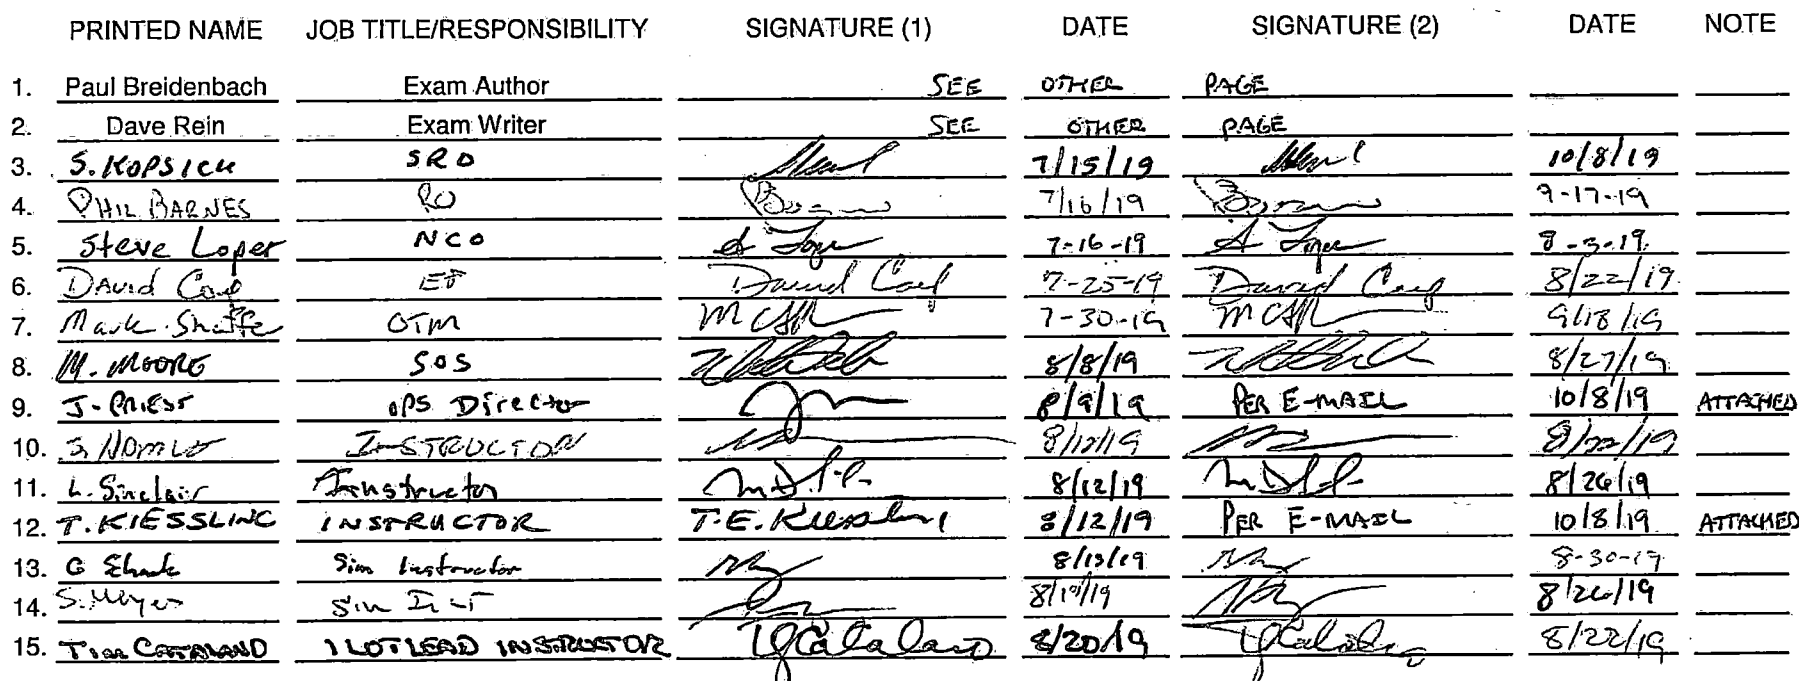 PRINTED NAME JOB TITLE/RESPONSIBILITY SIGNATURE (1) DATE SIGNATURE (2) DATE NOTE
1. Paul Breidenbach Exam Author SEE OTHER PAGE
2. Dave Rein Exam Writer SEE OTHER PAGE
3. S. KOPSICK SRO 7/15/19 10/8/19
4. PHIL BARNES RO 7/16/19 9-17-19
5. Steve Loper NCO S Loper 7-16-19 S Loper
6. David ET David 7-25-19 David 8/22/19
7. Mark OTM 7-30-19 9/18/19
8. M. MOORE SOS 8/8/19 8/27/19
9. J. PRIEST OPS Director 8/9/19 PER E-MAIL 10/8/19 ATTACHED
10. INSTRUCTOR 8/12/19 8/22/19
11. L. Sinclair Instructor 8/12/19 8/26/19
12. T. KIESSLING INSTRUCTOR T.E. Kiessling 8/12/19 PER E-MAIL 10/8/19 ATTACHED
13. Sim Instructor 8/13/19 8-30-19
14. S. Meyer Sim 8/26/19
15. Tim CATALANO ILOT LEAD INSTRUCTOR TJCatalano 8/20/19 TJCatalano 8/22/19